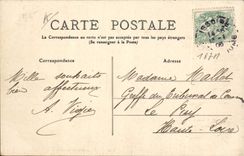 CARTE POSTALE
La Correspondance au recto n'est pas acceptée par tous les pays étrangers
(Se renseigner à la Poste)
CORRESPONDANCE
ADRESSE
Mille souhaits
bien affectueux
A.
Madame Mallet
Greffe du Tribunal de
Le Puy
Haute-Loire